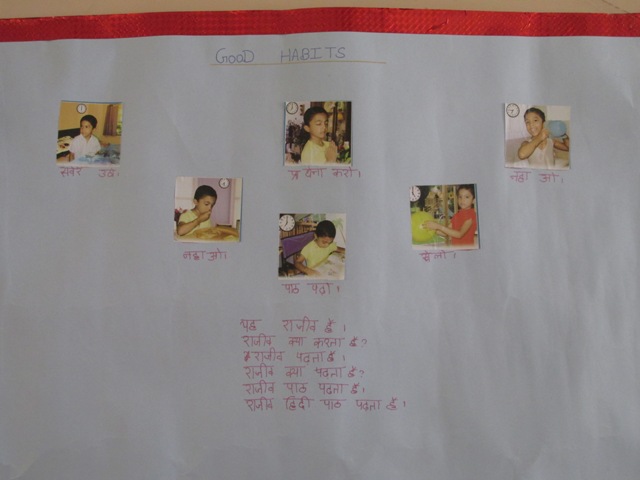 GOOD HABITS
सबेर उठ।
प्रार्थना करो।
नहा ओ।
नहाओ।
पाठ पढ़ो।
खेलो।
यह राजीव है।
राजीव क्या करता है?
राजीव पढ़ता है।
राजीव क्या पढ़ता है?
राजीव पाठ पढ़ता है।
राजीव हिंदी पाठ पढ़ता है।